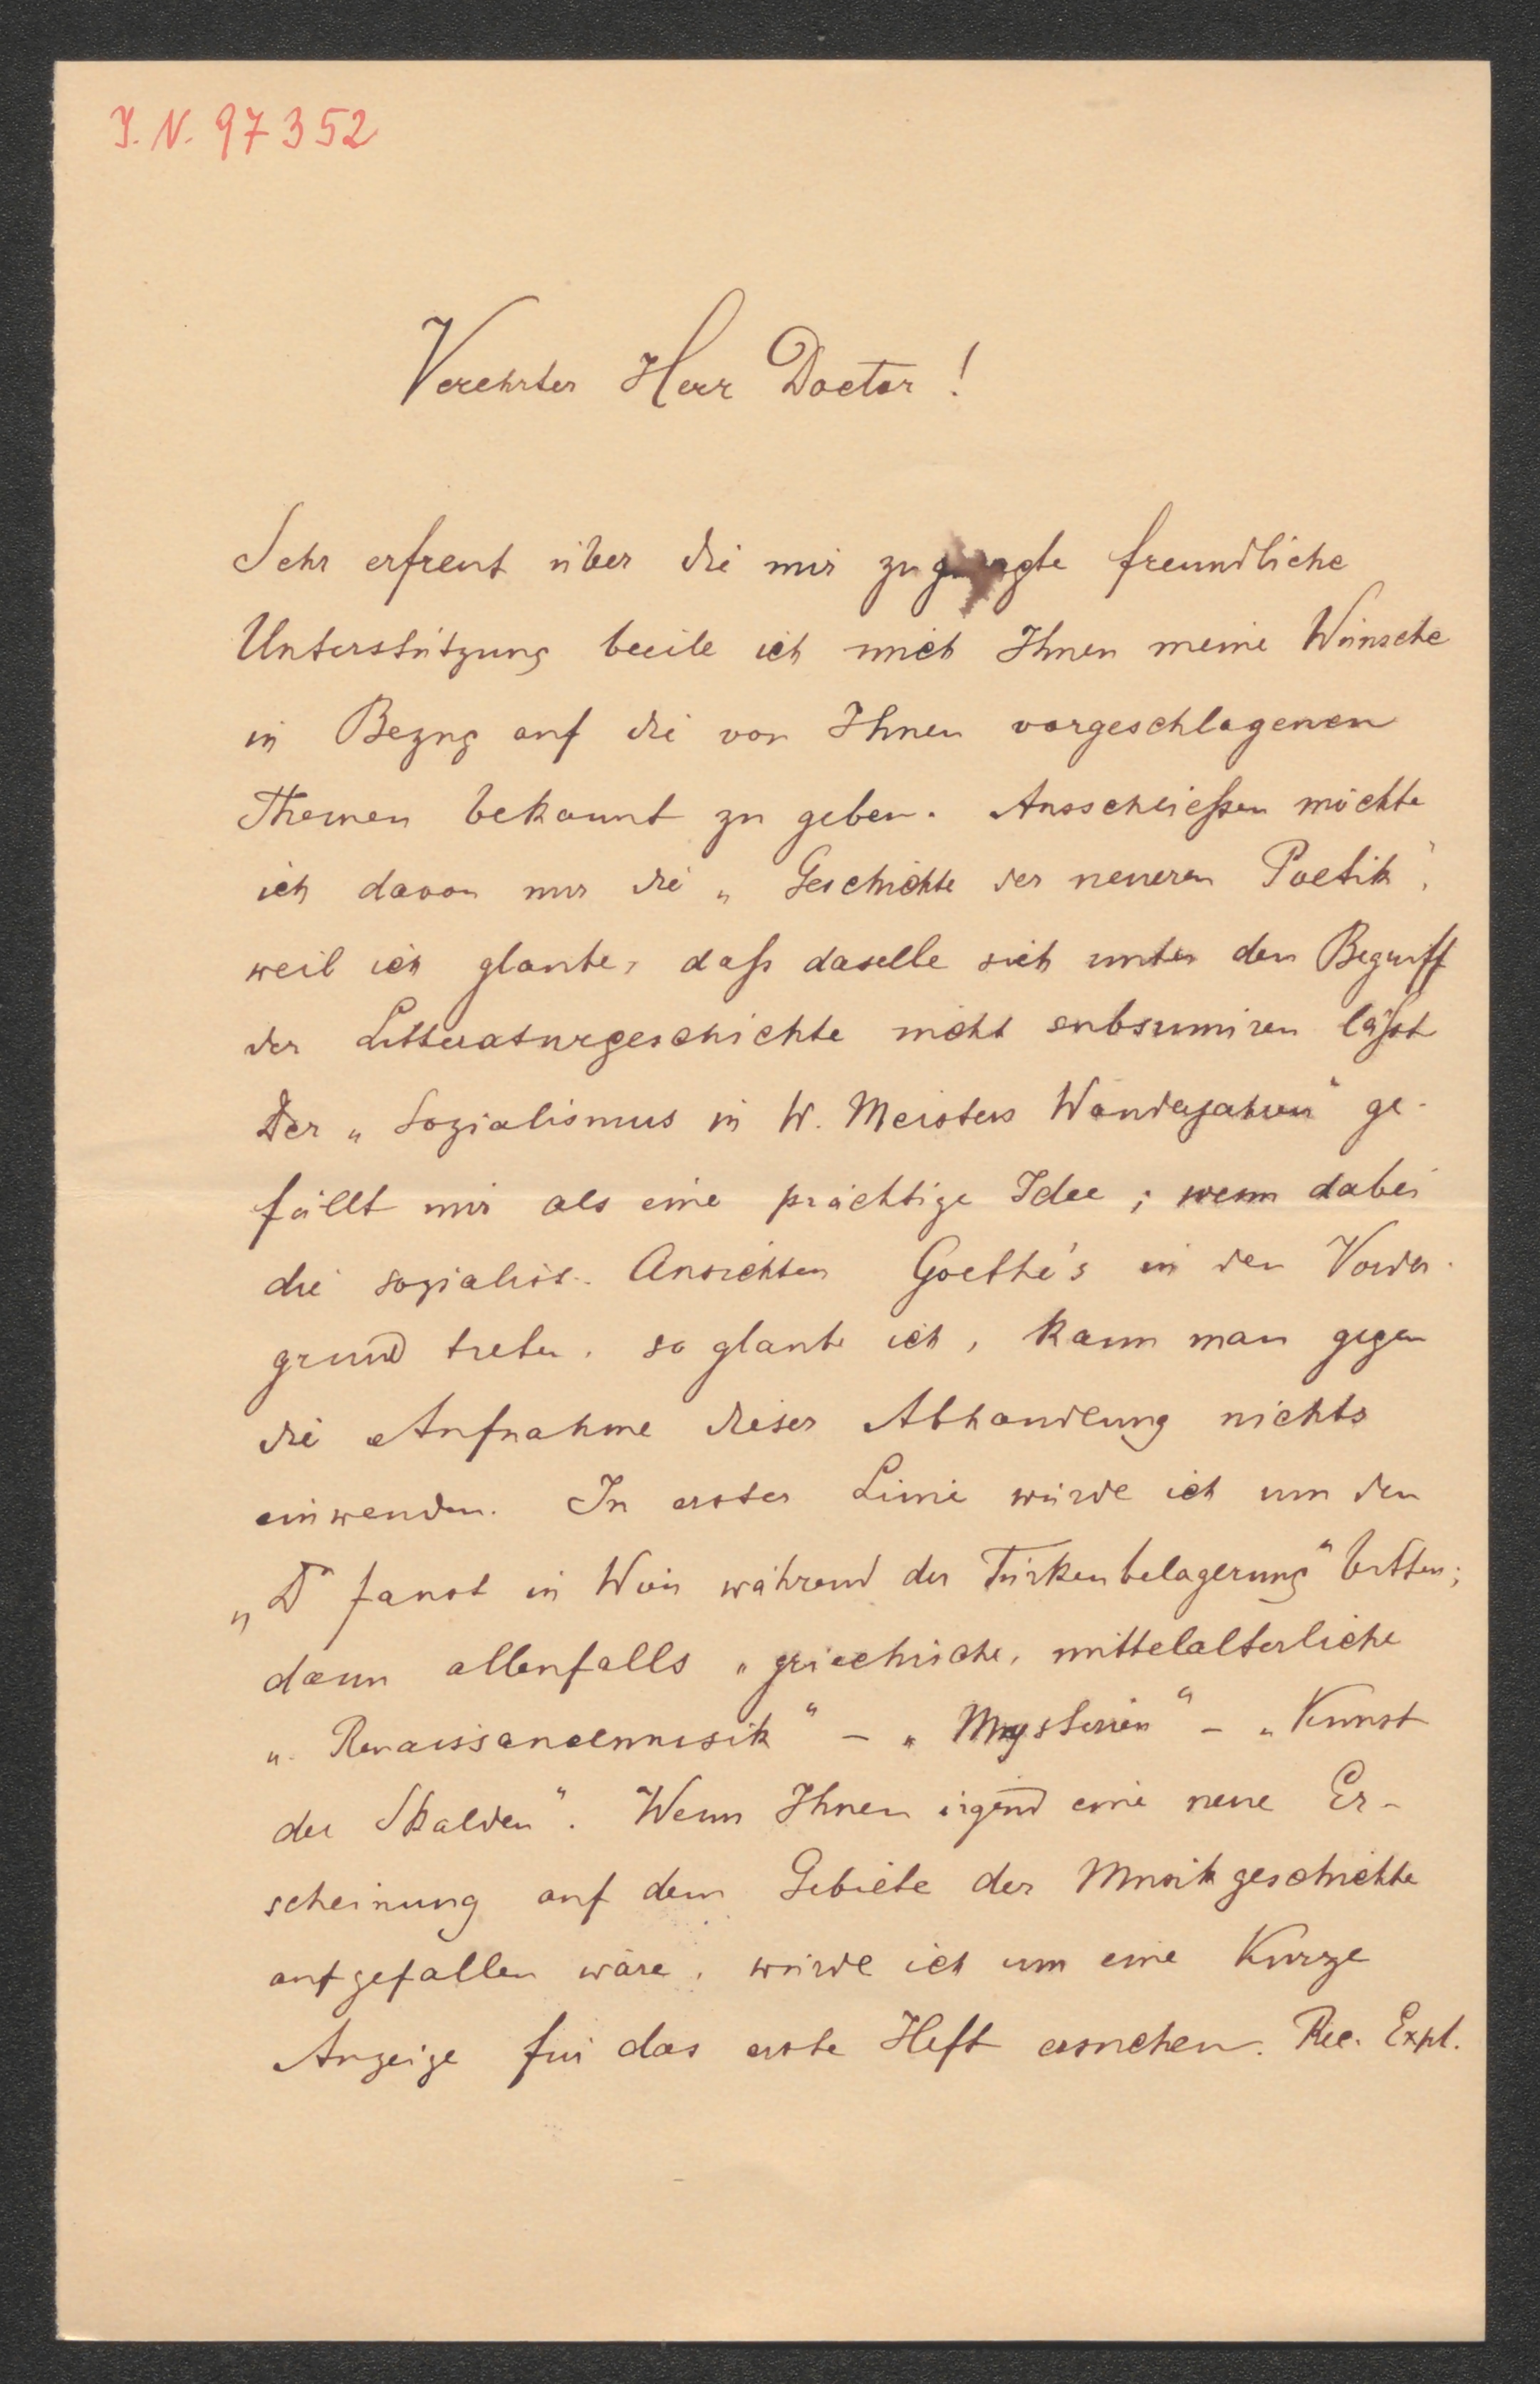 J. N. 97352
Verehrter Herr Doctor!
Sehr erfreut über die mir zugesagte freundliche
Unterstützung beeile ich mich Ihnen meine Wünsche
in Bezug auf die von Ihnen vorgeschlagenen
Themen bekannt zu geben. Ausschließen möchte
ich davon nur die „Geschichte der neueren Poetik",
weil ich glaube, daß daselbe sich unter den Begriff
der Litteraturgeschichte nicht subsumiren läßt
Der „Sozialismus in W. Meisters Wanderjahren" ge-
fällt mir als eine prächtige Idee; wenn dabei
die sozialist. Ansichten Goethe's in den Vorder-
grund treten, so glaube ich, kann man gegen
die Aufnahme dieser Abhandlung nichts
einwenden. In erster Linie würde ich um den
„Dr Faust in Wien während der Türkenbelagerung" bitten;
dann allenfalls „griechische, mittelalterliche
„Renaissancemusik" – „Mysterien" – „Kunst
der Skalden". Wenn Ihnen irgend eine neue Er-
scheinung auf dem Gebiete der Musikgeschichte
aufgefallen wäre, würde ich um eine kurze
Anzeige für das erste Heft ersuchen. Rec. Expl.